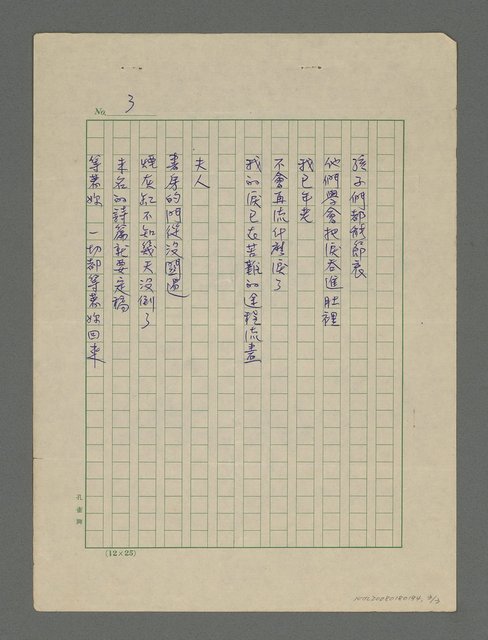 No. 3
孩子們都能節哀
他們學會把淚吞進肚裡
我已年老
不會再流什麼淚了
我的淚已在苦難的途程流盡
夫人
書房的門從沒關過
煙灰缸不知幾天沒倒了
未名的詩篇就要定稿
等著妳 一切都等著妳回來
孔雀牌
(12×25)